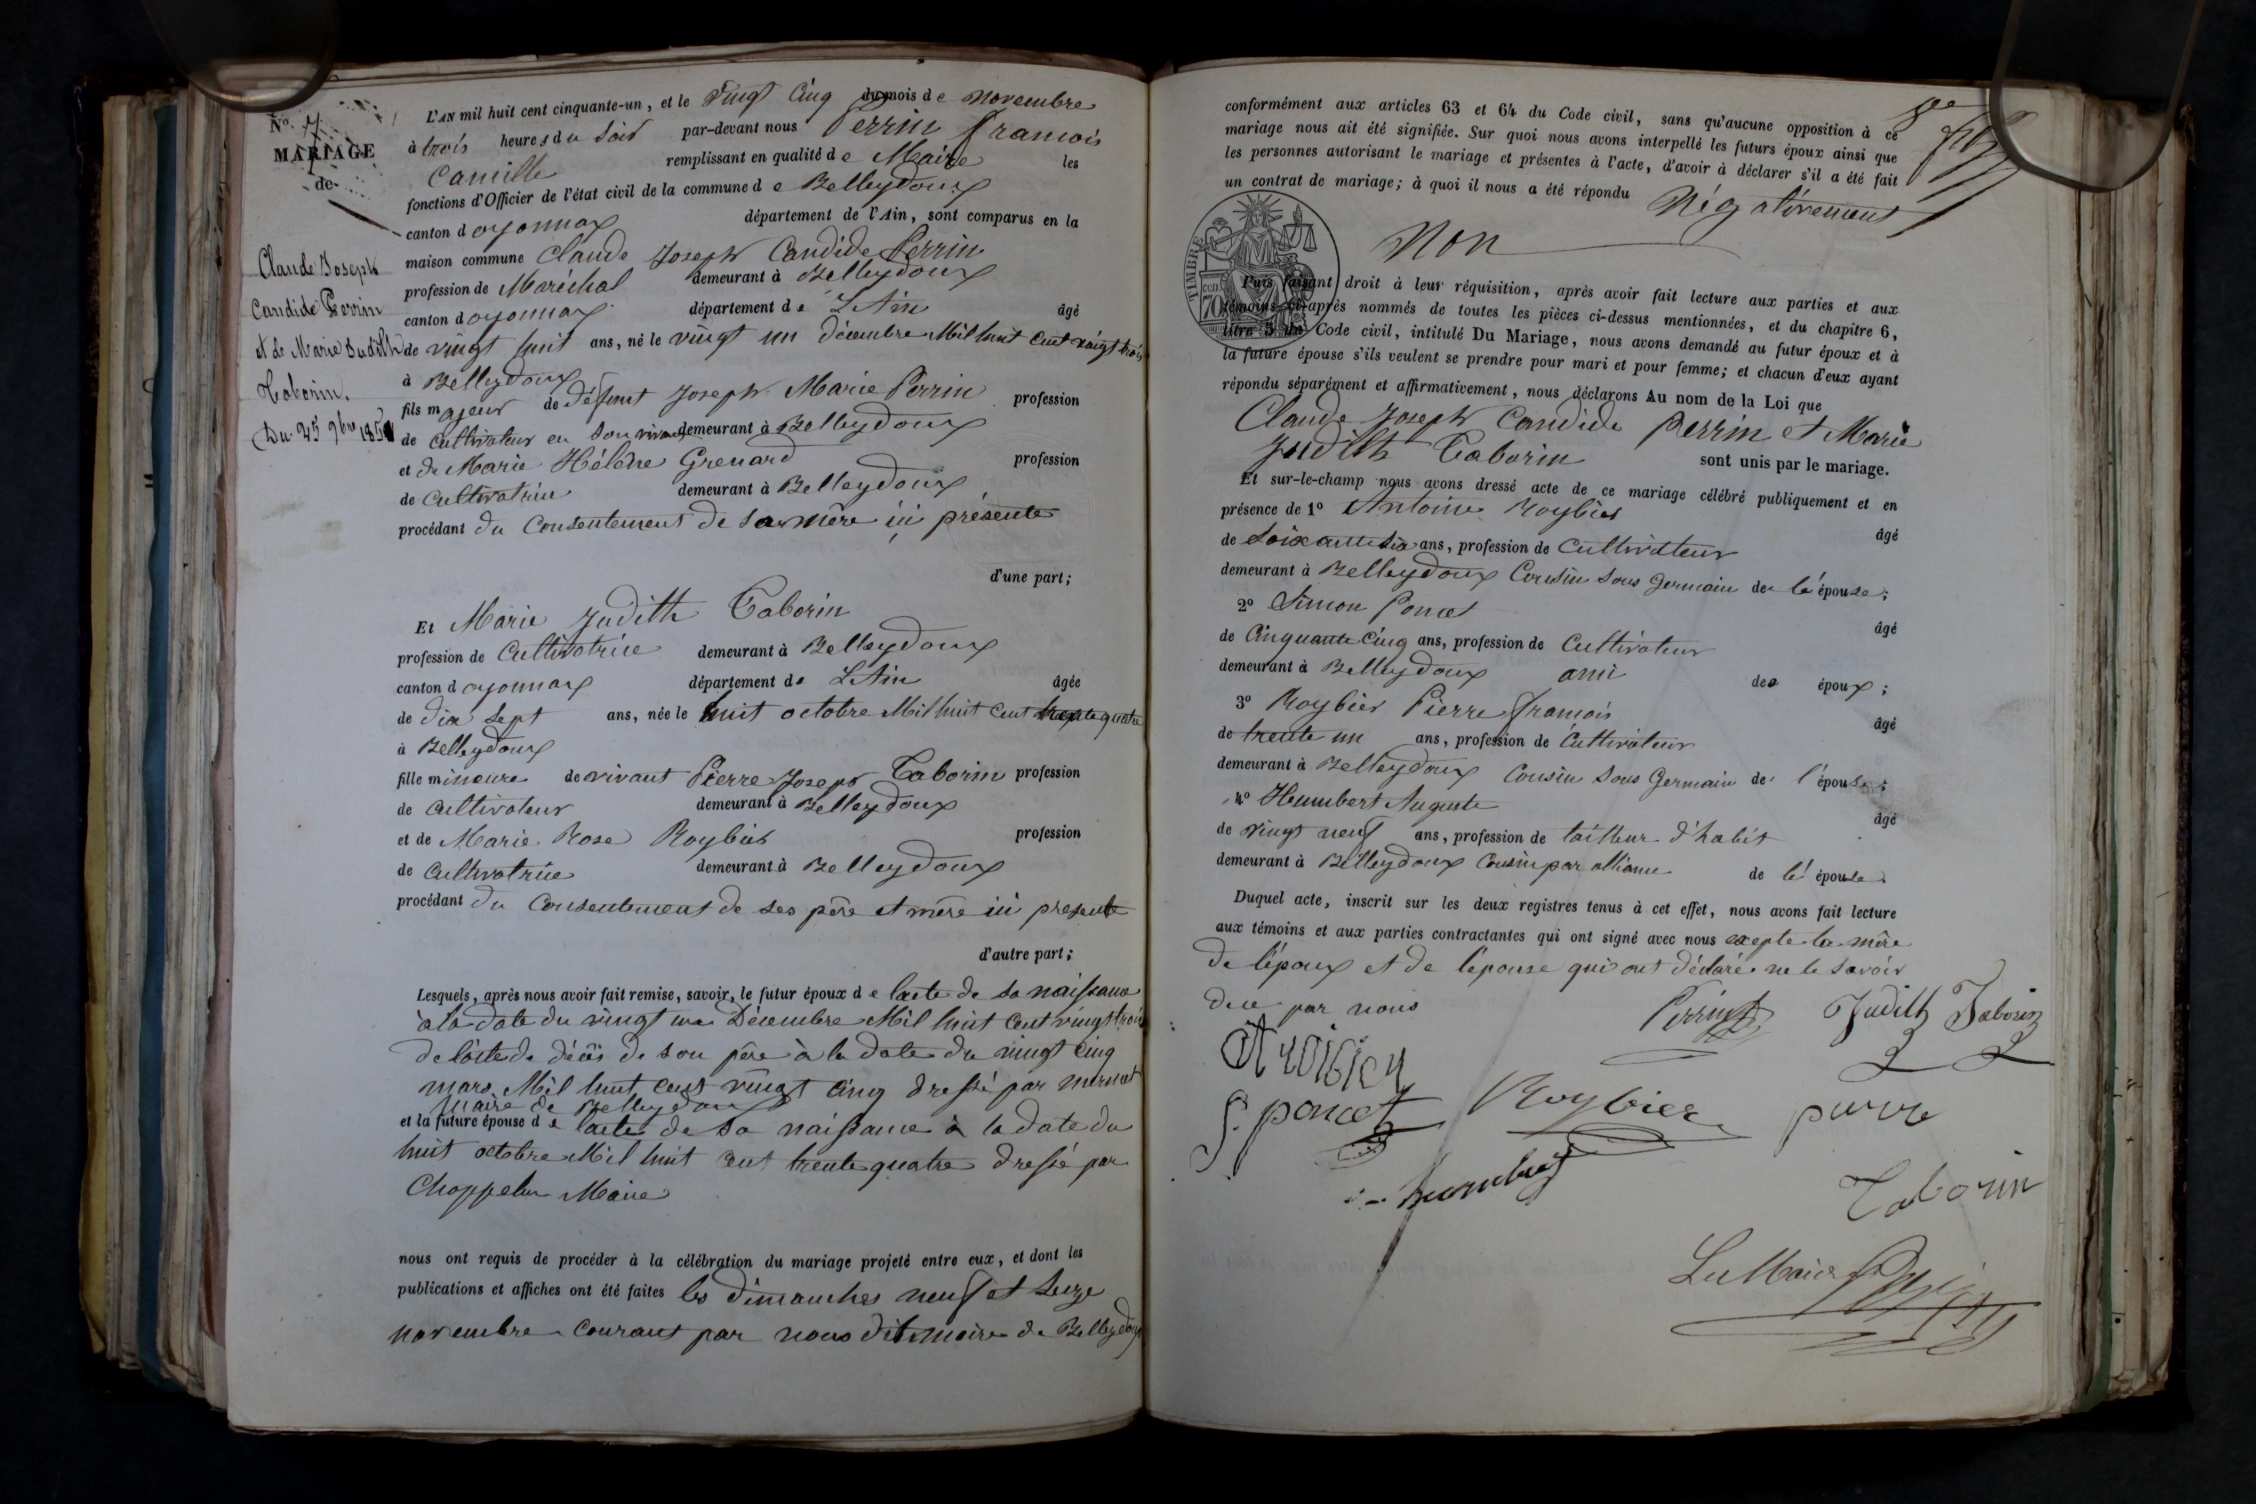 N° 7
MARIAGE
de
Claude Joseph
Candide Perrin
et de Marie Judith
Taborin.
Du 25 9bre 1851
L'AN mil huit cent cinquante-un, et le vingt cinq du mois de novembre
à trois heures du soir par-devant nous Perrin françois
Camille remplissant en qualité de Maire les
fonctions d'Officier de l'état civil de la commune de Belleydoux
canton d oyonnax département de l'Ain, sont comparus en la
maison commune Claude Joseph Candide Perrin
profession de Maréchal demeurant à Belleydoux
canton d oyonnax département de L'Ain âgé
de vingt huit ans, né le vingt un décembre Mil huit cent vingt trois
à Belleydoux
fils majeur de défunt Joseph Marie Perrin profession
de cultivateur en son vivant demeurant à Belleydoux
et de Marie Hélène Grenard profession
de cultivatrice demeurant à Belleydoux
procédant du consentement de sa mère ici présente
d'une part;
Et Marie Judith Taborin
profession de Cultivatrice demeurant à Belleydoux
canton d oyonnax département de L'Ain âgée
de dix sept ans, née le huit octobre Mil huit cent trente quatre
à Belleydoux
fille mineure de vivant Pierre Joseph Taborin profession
de cultivateur demeurant à Belleydoux
et de Marie Rose Roybier profession
de cultivatrice demeurant à Belleydoux
procédant du consentement de ses père et mère ici présente
d'autre part;
Lesquels, après nous avoir fait remise, savoir, le futur époux de lacte de sa naissance
à la date du vingt un Décembre Mil huit cent vingt trois
de lacte de décès de son père à la date du vingt cinq
mars Mil huit cent vingt cinq dressé par
maire de Belleydoux
et la future épouse de lacte de sa naissance à la date du
huit octobre Mil huit cent trente quatre dressé par
Chappelu Maire
nous ont requis de procéder à la célébration du mariage projeté entre eux, et dont les
publications et affiches ont été faites les dimanches neuf et seize
novembre courant par nous dit maire de Belleydoux
conformément aux articles 63 et 64 du Code civil, sans qu'aucune opposition à ce
mariage nous ait été signifiée. Sur quoi nous avons interpellé les futurs époux ainsi que
les personnes autorisant le mariage et présentes à l'acte, d'avoir à déclarer s'il a été fait
un contrat de mariage; à quoi il nous a été répondu Négativement
Non
TIMBRE
70
Puis faisant droit à leur réquisition, après avoir fait lecture aux parties et aux
témoins ci-après nommés de toutes les pièces ci-dessus mentionnées, et du chapitre 6,
titre 5 du Code civil, intitulé Du Mariage, nous avons demandé au futur époux et à
la future épouse s'ils veulent se prendre pour mari et pour femme; et chacun d'eux ayant
répondu séparément et affirmativement, nous déclarons Au nom de la Loi que
Claude Joseph Candide Perrin et Marie
Judith Taborin sont unis par le mariage.
Et sur-le-champ nous avons dressé acte de ce mariage célébré publiquement et en
présence de 1° Antoine Roybier âgé
de soixante six ans, profession de Cultivateur
demeurant à Belleydoux Cousin sous germain de lé épouse;
2° Simon Poncet âgé
de Cinquante cinq ans, profession de Cultivateur
demeurant à Belleydoux ami des époux;
3° Roybier Pierre françois âgé
de trente un ans, profession de Cultivateur
demeurant à Belleydoux Cousin sous Germain de l'épouse;
4° Humbert Auguste âgé
de vingt neuf ans, profession de tailleur d'habit
demeurant à Belleydoux Cousin par alliance de lé épouse.
Duquel acte, inscrit sur les deux registres tenus à cet effet, nous avons fait lecture
aux témoins et aux parties contractantes qui ont signé avec nous excepte la mère
de lépoux et de lépouse qui ont déclaré ne le savoir
de ce par nous
Perrin Judith Taborin
At roibier
S. poncet Roybier pierre
humbert
Taborin
Le Maire